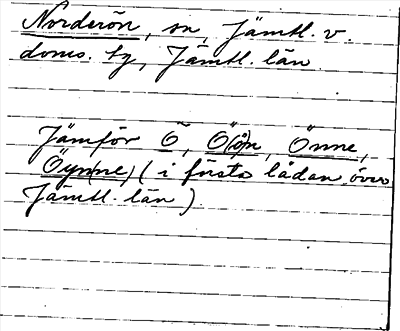 Norderön, sn, Jämtl. v.
doms. tg, Jämtl. län
Jämför Ö, Ö(ö)n, Önne,
Öyn(ne) (i första lådan över
Jämtl. län)